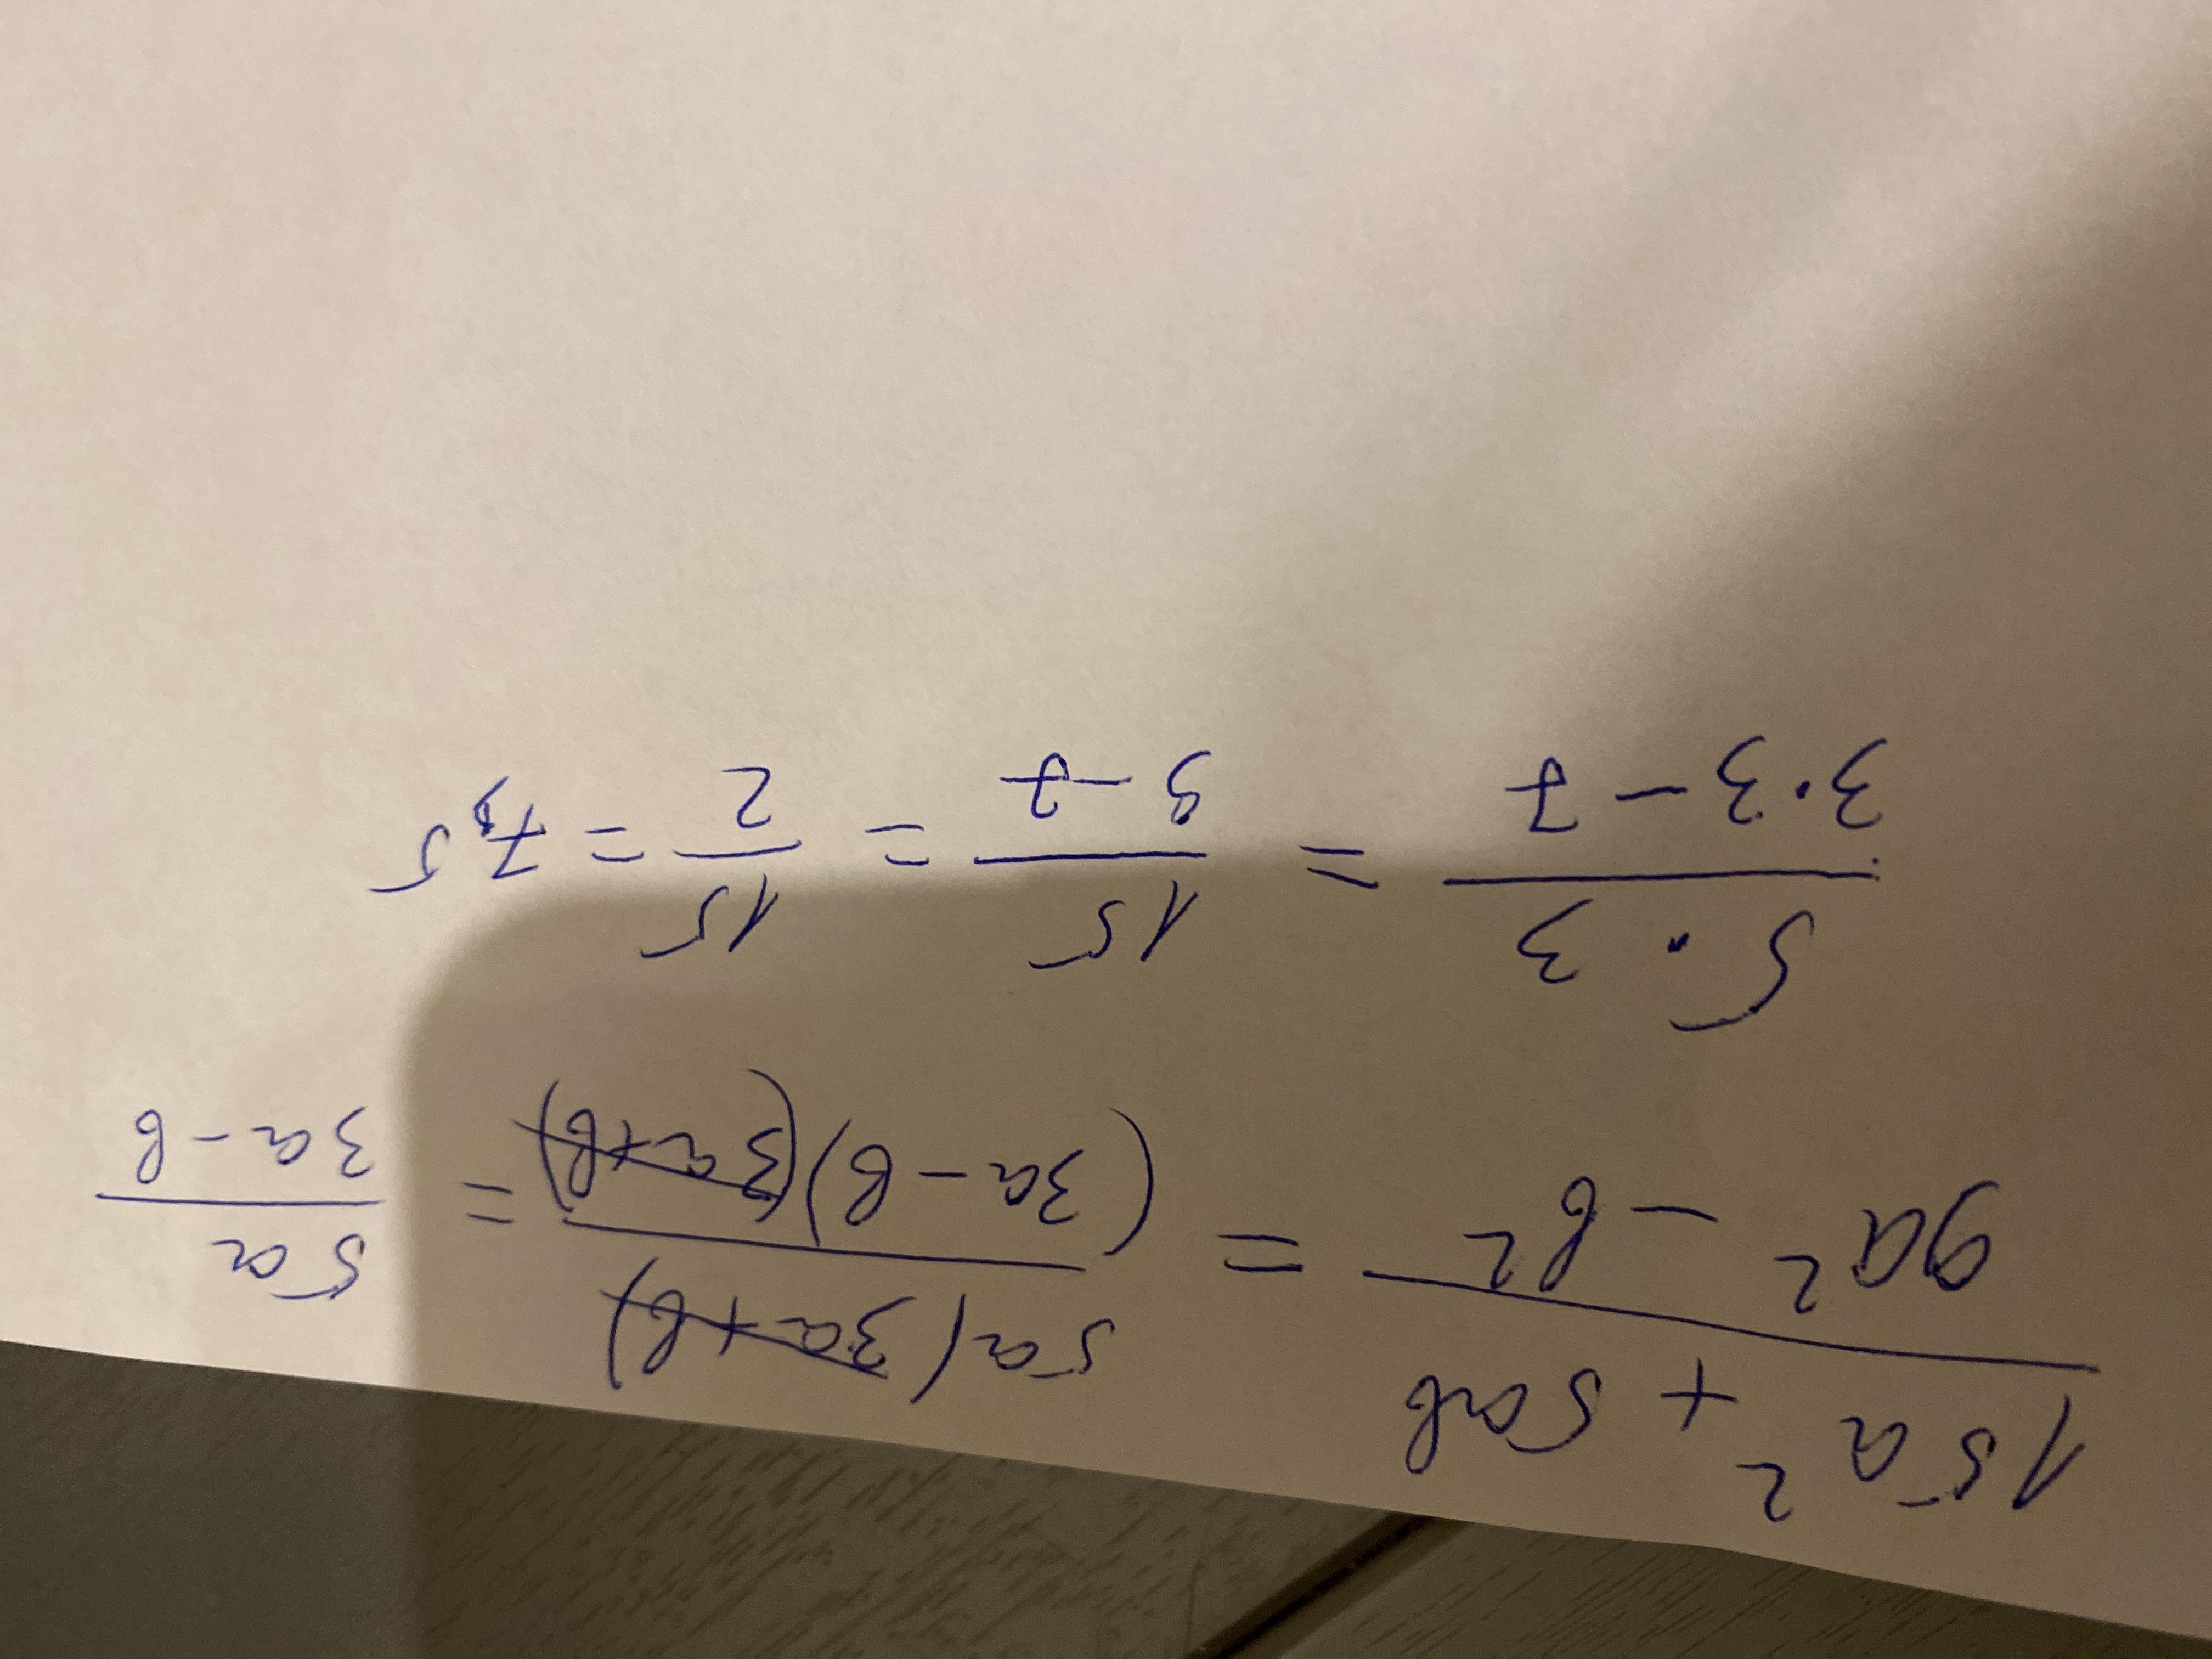 (15a² + 5ab)/(9a² - b²) = (5a(3a+b))/((3a-b)(3a+b)) = 5a/(3a-b)
(5·3)/(3·3-7) = 15/(9-7) = 15/2 = 7,5